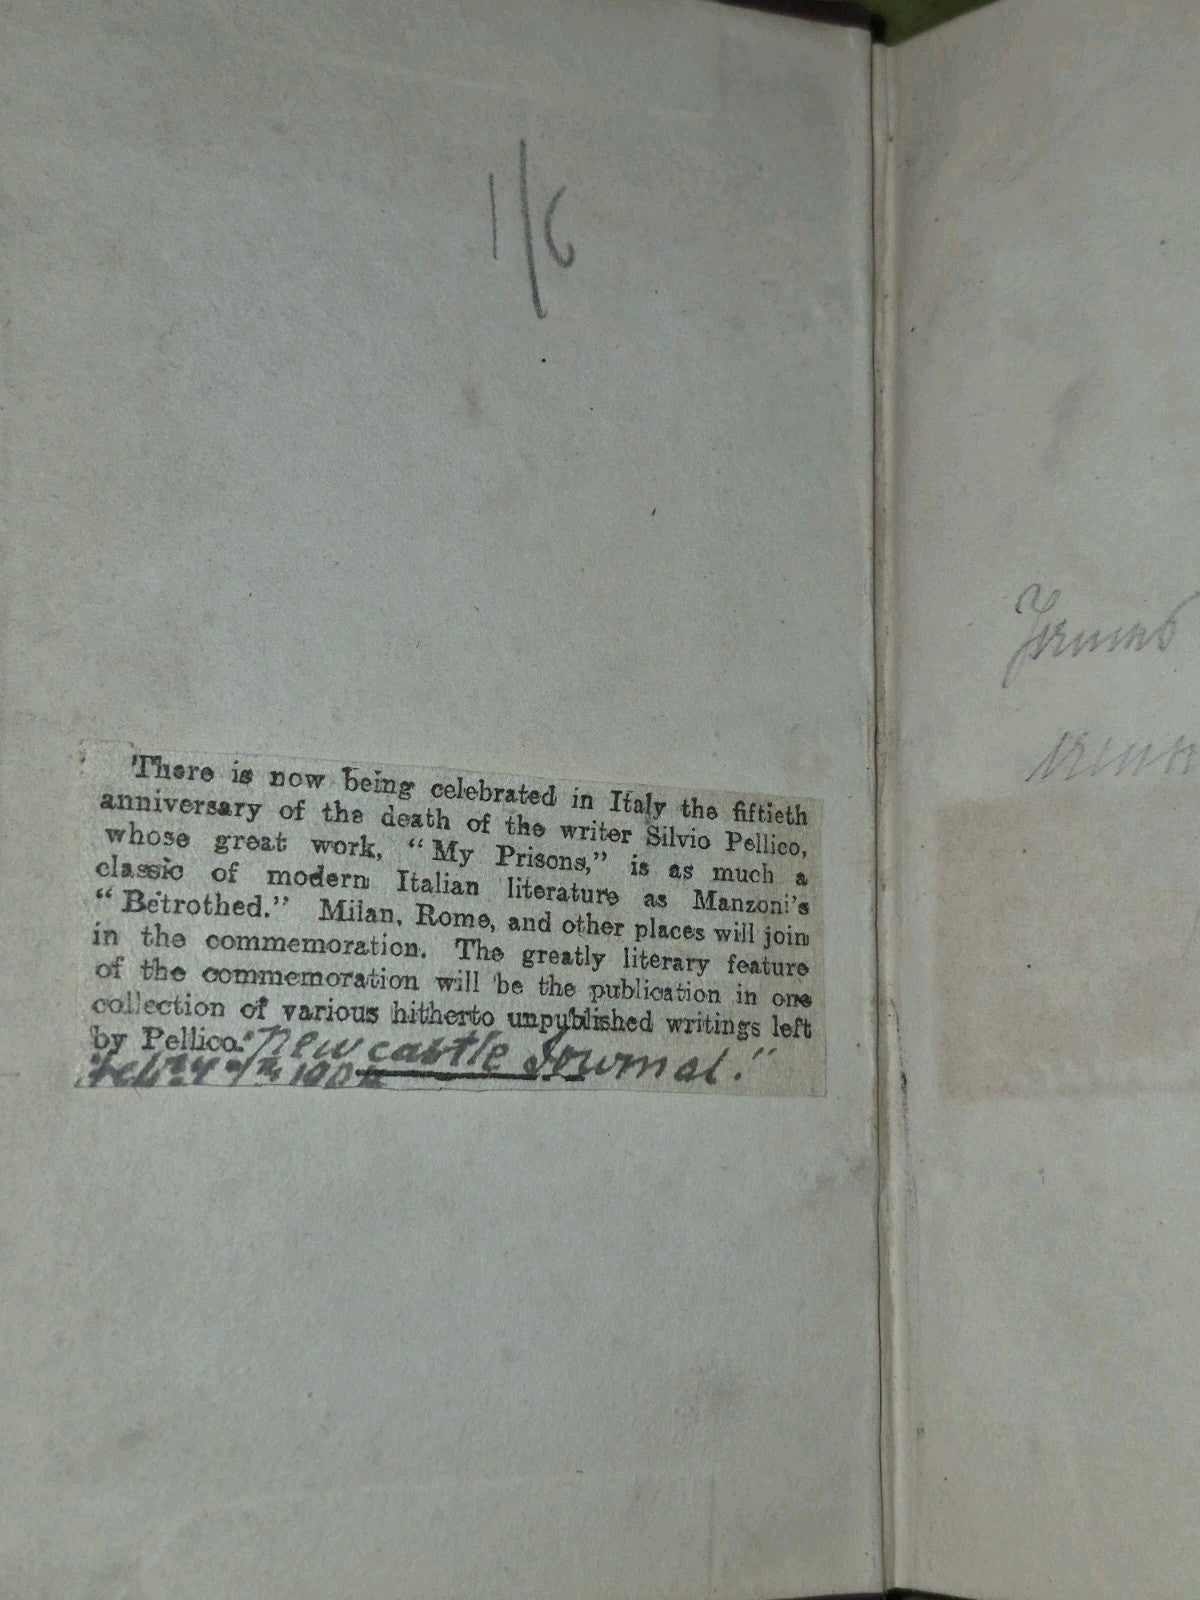 1/6
There is now being celebrated in Italy the fiftieth
anniversary of the death of the writer Silvio Pellico,
whose great work, “My Prisons,” is as much a
classic of modern Italian literature as Manzoni's
“Betrothed.” Milan, Rome, and other places will join
in the commemoration. The greatly literary feature
of the commemoration will be the publication in one
collection of various hitherto unpublished writings left
by Pellico." Newcastle Journal."